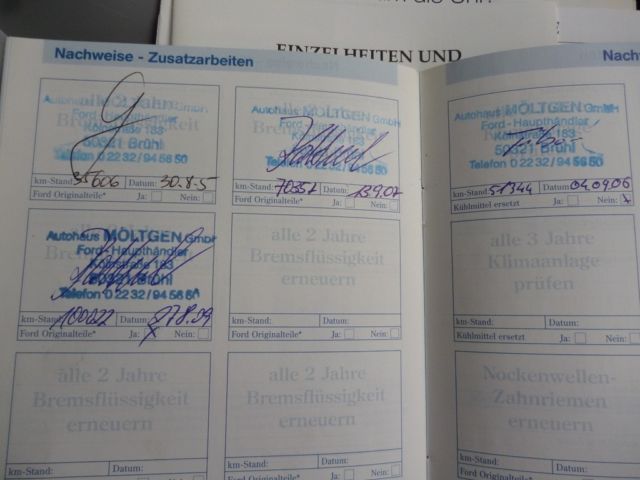 EINZELHEITEN UND
Nachweise - Zusatzarbeiten
Nach
alle 2 Jahre
Autohaus MÖLTGEN GmbH
Ford - Haupthändler
Kölnstraße 183
50321 Brühl
Telefon 0 22 32 / 94 56 50
km-Stand: Datum: 30.8.5
Ford Originalteile* Ja: Nein:
Autohaus MÖLTGEN GmbH
Ford - Haupthändler
Telefon 0 22 32 / 94 56 50
km-Stand: 70357 Datum: 139.07
Ford Originalteile* Ja: Nein:
Autohaus MÖLTGEN GmbH
Ford - Haupthändler
Kölnstraße 183
50321 Brühl
Telefon 0 22 32 / 94 56 50
km-Stand: 51344 Datum: 04.09.06
Kühlmittel ersetzt Ja: Nein:
Autohaus MÖLTGEN GmbH
Ford - Haupthändler
Kölnstraße 183
50321 Brühl
Telefon 0 22 32 / 94 56 50
km-Stand: 100022 Datum: 27.8.09
Ford Originalteile* Ja: Nein:
alle 2 Jahre
Bremsflüssigkeit
erneuern
km-Stand: Datum:
Ford Originalteile* Ja: Nein:
alle 3 Jahre
Klimaanlage
prüfen
km-Stand: Datum:
Kühlmittel ersetzt Ja: Nein:
alle 2 Jahre
Bremsflüssigkeit
erneuern
km-Stand: Datum:
Ford Originalteile* Ja: Nein:
alle 2 Jahre
Bremsflüssigkeit
erneuern
km-Stand: Datum:
Ford Originalteile* Ja: Nein:
Nockenwellen-
Zahnriemen
erneuern
km-Stand: Datum: